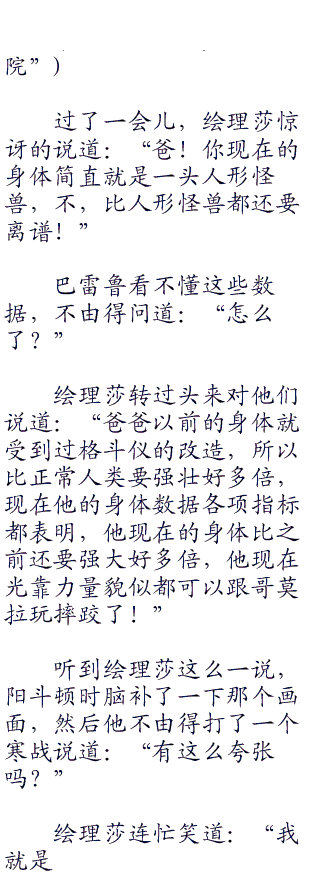 院”)
过了一会儿，绘理莎惊
讶的说道：“爸！你现在的
身体简直就是一头人形怪
兽，不，比人形怪兽都还要
离谱！”
巴雷鲁看不懂这些数
据，不由得问道：“怎么
了？”
绘理莎转过头来对他们
说道：“爸爸以前的身体就
受到过格斗仪的改造，所以
比正常人类要强壮好多倍，
现在他的身体数据各项指标
都表明，他现在的身体比之
前还要强大好多倍，他现在
光靠力量貌似都可以跟哥莫
拉玩摔跤了！”
听到绘理莎这么一说，
阳斗顿时脑补了一下那个画
面，然后他不由得打了一个
寒战说道：“有这么夸张
吗？”
绘理莎连忙笑道：“我
就是